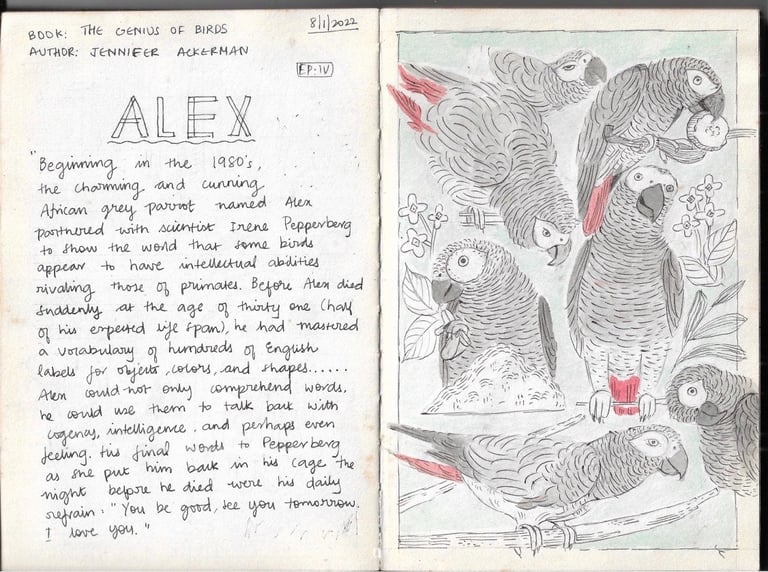 BOOK: THE GENIUS OF BIRDS
8/1/2022
AUTHOR: JENNIFER ACKERMAN
EP:IV
ALEX
"Beginning in the 1980's,
the charming and cunning
African grey parrot named Alex
partnered with scientist Irene Pepperberg
to show the world that some birds
appear to have intellectual abilities
rivaling those of primates. Before Alex died
suddenly at the age of thirty one (half
of his expected life span), he had mastered
a vocabulary of hundreds of English
labels for objects, colors, and shapes......
Alex could not only comprehend words,
he could use them to talk back with
cogency, intelligence, and perhaps even
feeling. His final words to Pepperberg
as she put him back in his cage the
night before he died were his daily
refrain: "You be good, see you tomorrow.
I love you."